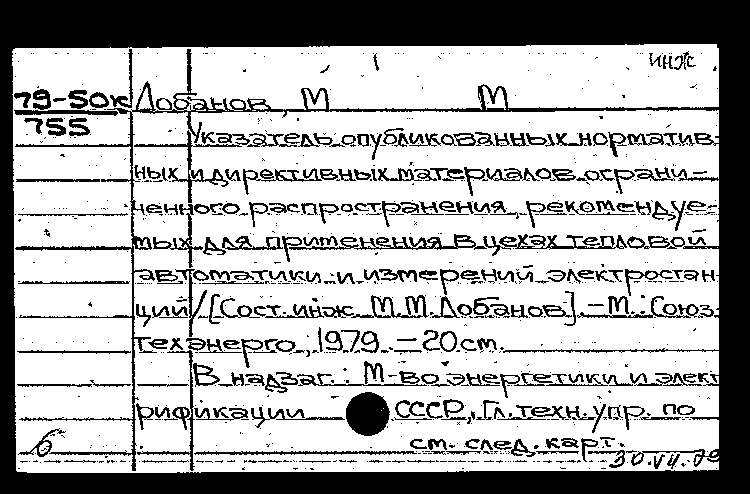 инж
79-50к Лобанов, М М
755
Указатель опубликованных норматив-
ных и директивных материалов ограни-
ченного распространения, рекомендуе-
мых для применения в цехах тепловой
автоматики и измерений электростан-
ций / [Сост. инж. М.М. Лобанов]. - М.: Союз-
техэнерго, 1979. - 20 см.
В надзаг.: М-во энергетики и элект-
рификации СССР, Гл. техн. упр. по
б см. след. карт.
30.VII.79